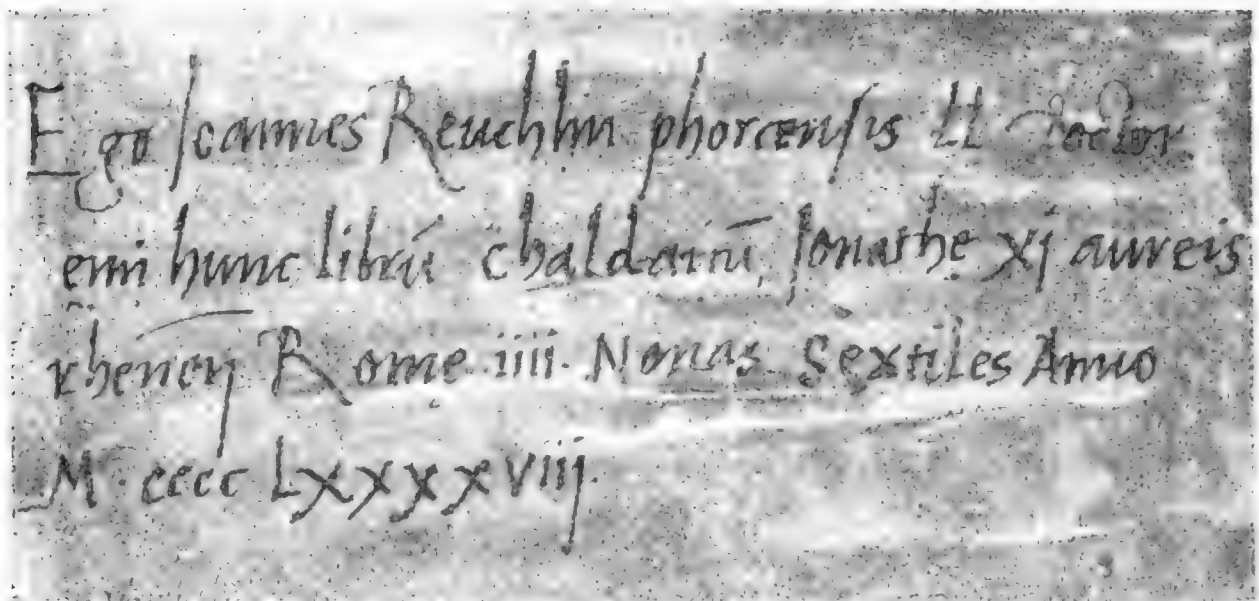 Ego Joannes Reuchlin phorcensis LL doctor
emi hunc librū chaldaicū Jonathe xj aureis
rhēnen Rome iiii. Nonas Sextiles Anno
M. cccc Lxxxxviij.